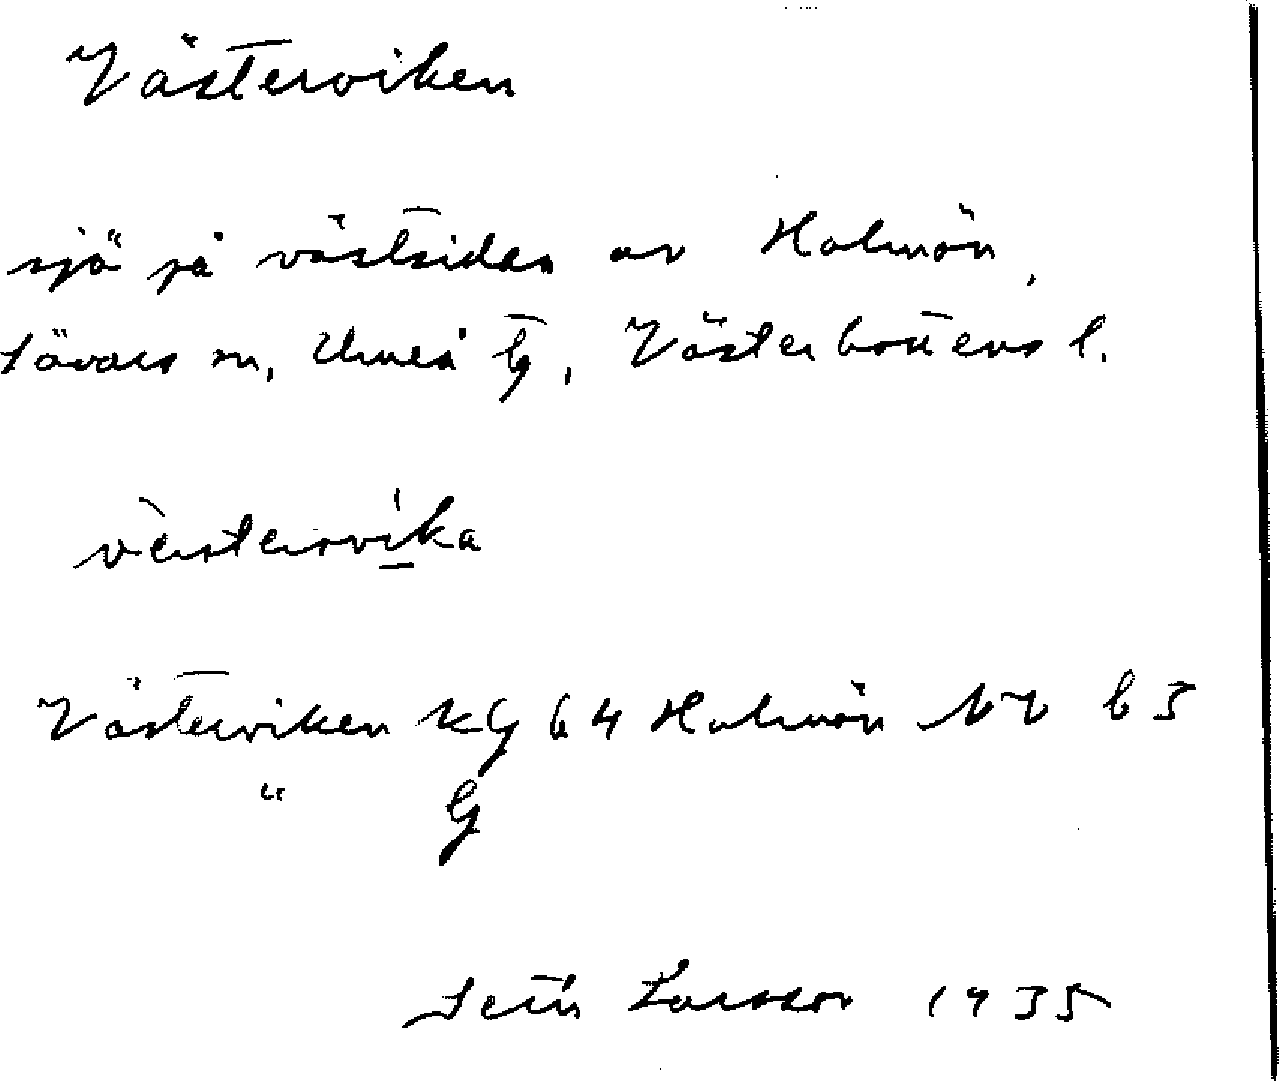 Västerviken
sjö på västsidan av Holmön,
Sävars sn, Umeå tg, Västerbottens l.
vèstervíka
Västerviken KG 64 Holmön NV b3
" G
Setin Larsson 1935